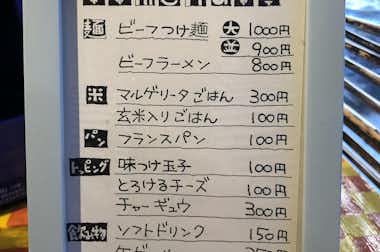 麺 ビーフつけ麺 大 1000円
並 900円
ビーフラーメン 800円
米 マルゲリータごはん 300円
玄米入りごはん 100円
パン フランスパン 100円
トッピング 味つけ玉子 100円
とろけるチーズ 100円
チャーギュウ 300円
飲み物 ソフトドリンク 150円